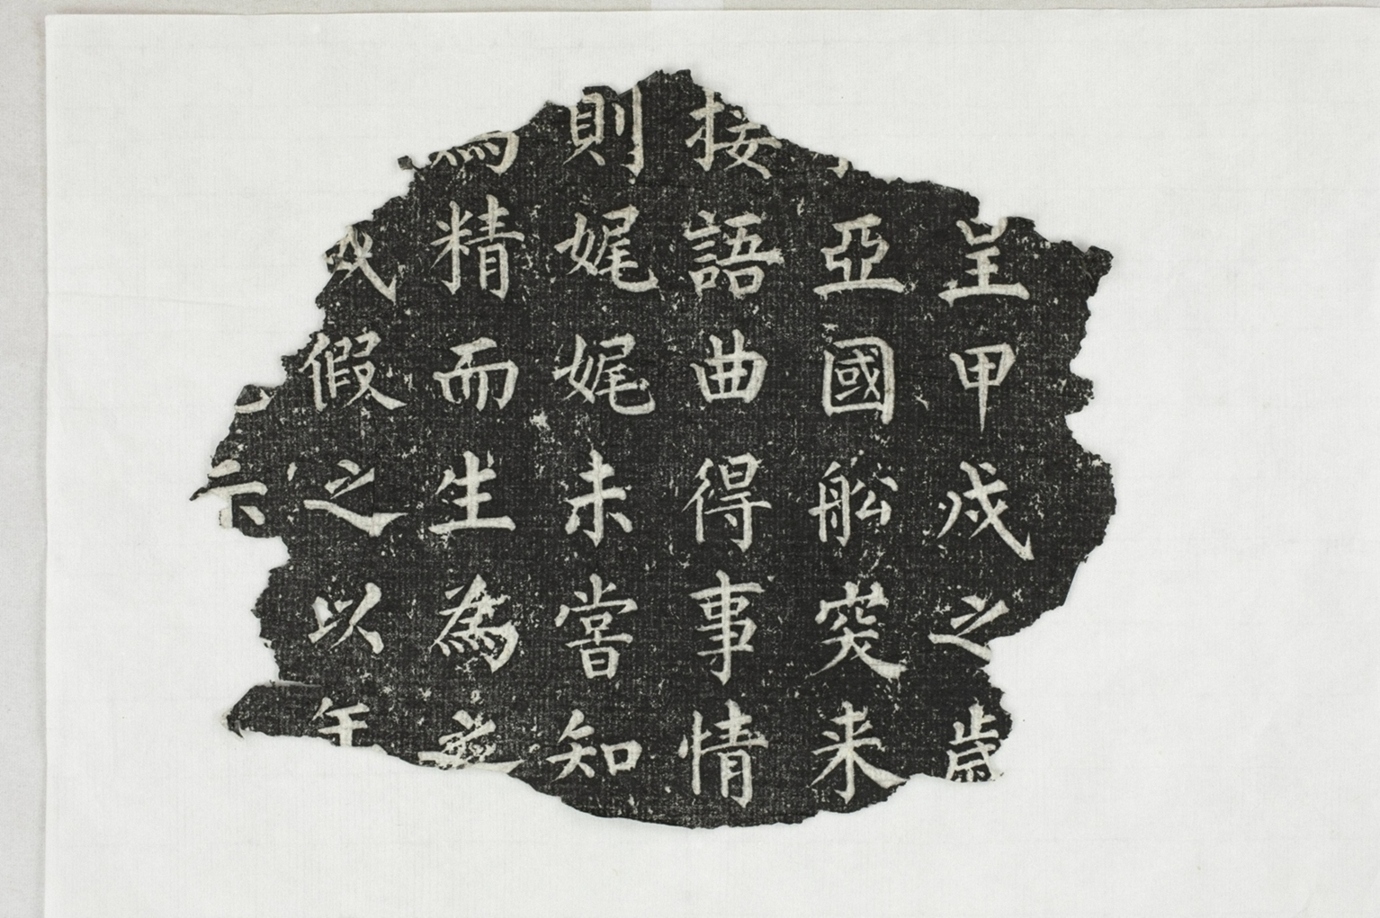 呈甲戌之歲
亞國舩突来
接語曲得事情
則娓娓未嘗知
為精而生為
假之以年